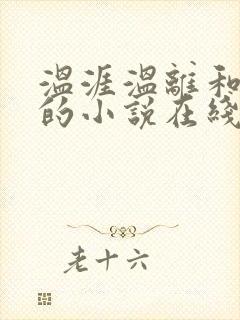 温涯温離和
的小説在綫
老十六